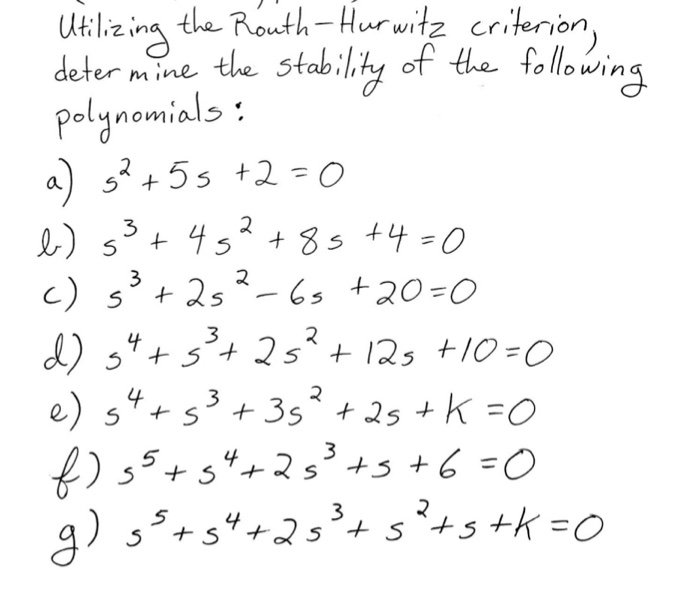 Utilizing the Routh-Hurwitz criterion,
determine the stability of the following
polynomials:
a) s² + 5s + 2 = 0
b) s³ + 4s² + 8s + 4 = 0
c) s³ + 2s² - 6s + 20 = 0
d) s⁴ + s³ + 2s² + 12s + 10 = 0
e) s⁴ + s³ + 3s² + 2s + K = 0
f) s⁵ + s⁴ + 2s³ + s + 6 = 0
g) s⁵ + s⁴ + 2s³ + s² + s + K = 0